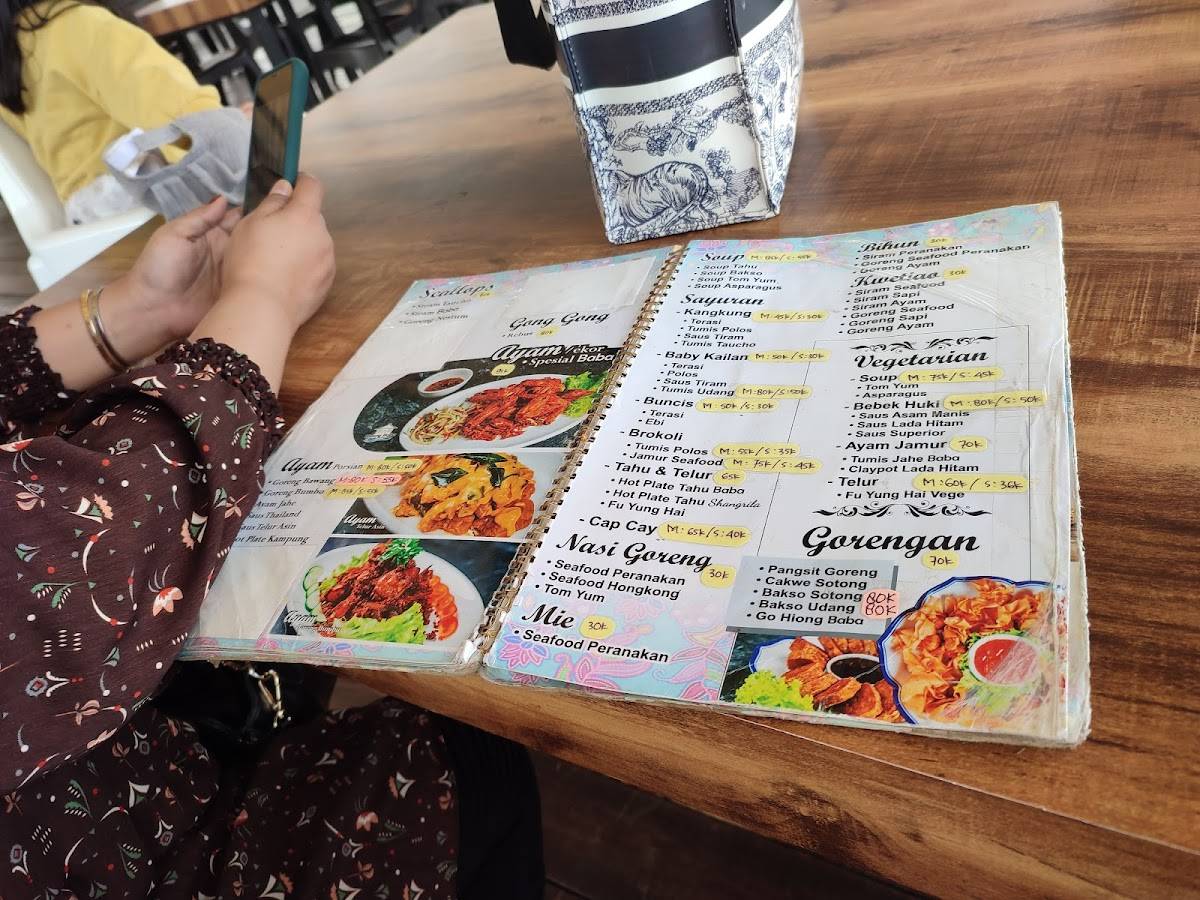 Scallops
Siram Taucho
Gong Gong
Rebus 80k
Ayam /ekor
Spesial Baba
Ayam Porsian M: 80k/S: 50k
Goreng Bawang M: 80K S: 55K
Goreng Bumbu
Ayam Jahe
Saus Thailand
Saus Telur Asin
Hot Plate Kampung
Ayam
Telur Asin
Ayam
Soup
Soup Tahu
Soup Bakso
Soup Tom Yum
Soup Asparagus
Sayuran
- Kangkung M: 45k/S: 30k
Terasi
Tumis Polos
Saus Tiram
Tumis Taucho
- Baby Kailan
Terasi
Polos
Saus Tiram
Tumis Udang M: 80k/S: 50k
- Buncis M: 50k/S: 30k
Terasi
Ebi
- Brokoli
Tumis Polos M: 55k/S: 35k
Jamur Seafood M: 75k/S: 45k
- Tahu & Telur 65k
Hot Plate Tahu Baba
Hot Plate Tahu Shangrila
Fu Yung Hai
- Cap Cay M: 65k/S: 40k
Nasi Goreng 30k
Seafood Peranakan
Seafood Hongkong
Tom Yum
Mie 30k
Seafood Peranakan
Bihun 30k
Siram Peranakan
Goreng Seafood Peranakan
Goreng Ayam
Kwetiao 30k
Siram Seafood
Siram Sapi
Siram Ayam
Goreng Seafood
Goreng Sapi
Goreng Ayam
Vegetarian
- Soup M: 75k/S: 45k
Tom Yum
Asparagus
- Bebek Huki M: 80k/S: 50k
Saus Asam Manis
Saus Lada Hitam
Saus Superior
- Ayam Jamur 70k
Tumis Jahe Baba
Claypot Lada Hitam
- Telur M: 60k/S: 36k
Fu Yung Hai Vege
Gorengan
70k
Pangsit Goreng
Cakwe Sotong
Bakso Sotong 80K
Bakso Udang 80K
Go Hiong Baba